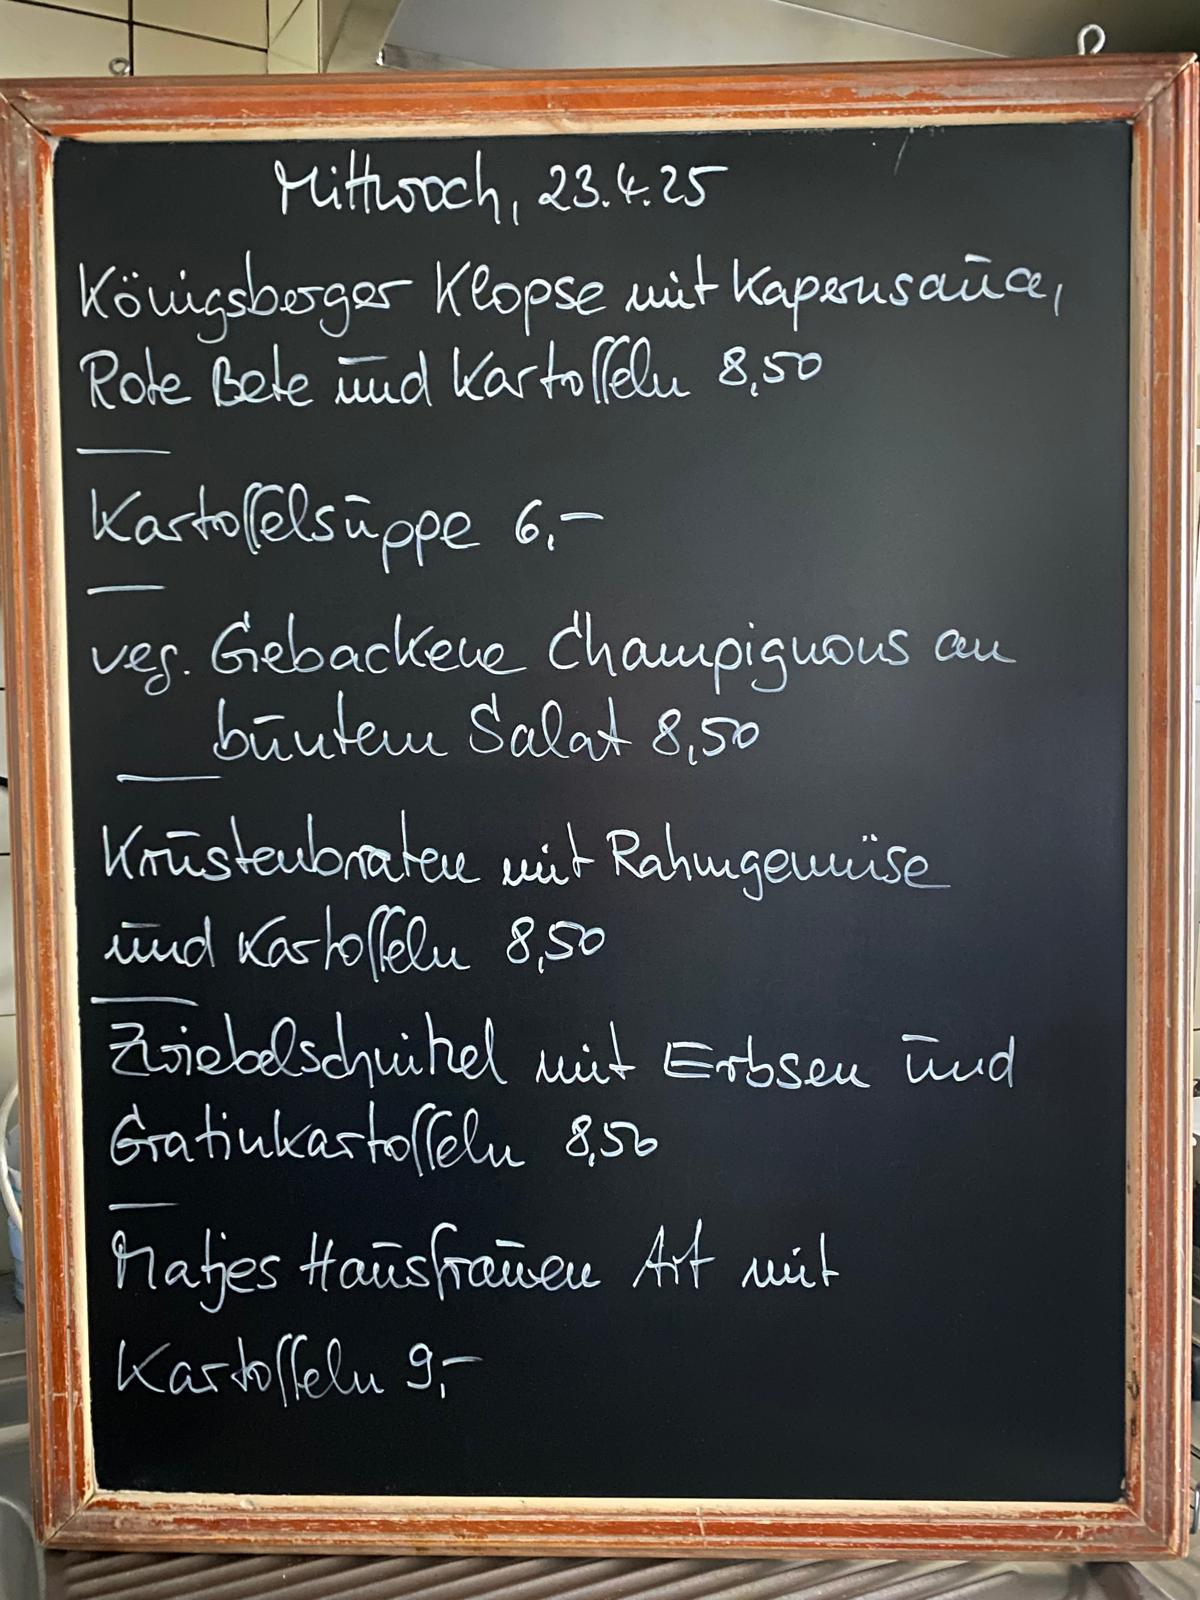 Mittwoch, 23.4.25
Königsberger Klopse mit Kapernsauce,
Rote Bete und Kartoffeln 8,50
Kartoffelsuppe 6,-
veg. Gebackene Champignons an
buntem Salat 8,50
Krustenbraten mit Rahmgemüse
und Kartoffeln 8,50
Zwiebelschnitzel mit Erbsen und
Gratinkartoffeln 8,50
Matjes Hausfrauen Art mit
Kartoffeln 9,-